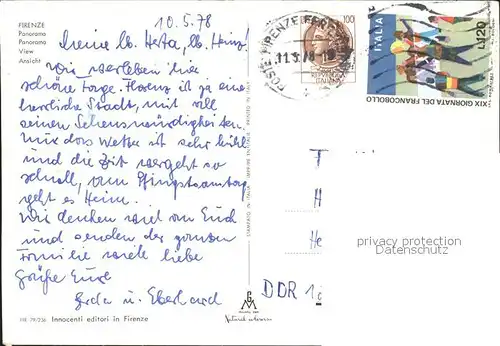 FIRENZE
Panorama
Panorama
View
Ansicht
10.5.78
Meine lb. Herta, lb. Heinz!
Wir verleben hier
schöne Tage. Florenz ist ja eine
herrliche Stadt, mit all
seinen Sehenswürdigkeiten.
Nur das Wetter ist sehr kühl
und die Zeit vergeht so
schnell, am Pfingstsamstag
geht es Heim.
Wir denken viel an Euch
und senden der ganzen
Familie viele liebe
Grüße Eure
Gerda u. Eberhard
FIR 79/236 Innocenti editori in Firenze
STAMPATO IN ITALIA - IMPRIMÉ EN ITALIE - PRINTED IN ITALY
100
POSTE FIRENZE FERROVIA
11.5.78
ITALIA L120
XIX GIORNATA DEL FRANCOBOLLO
T
H
He
privacy protection
Datenschutz
DDR